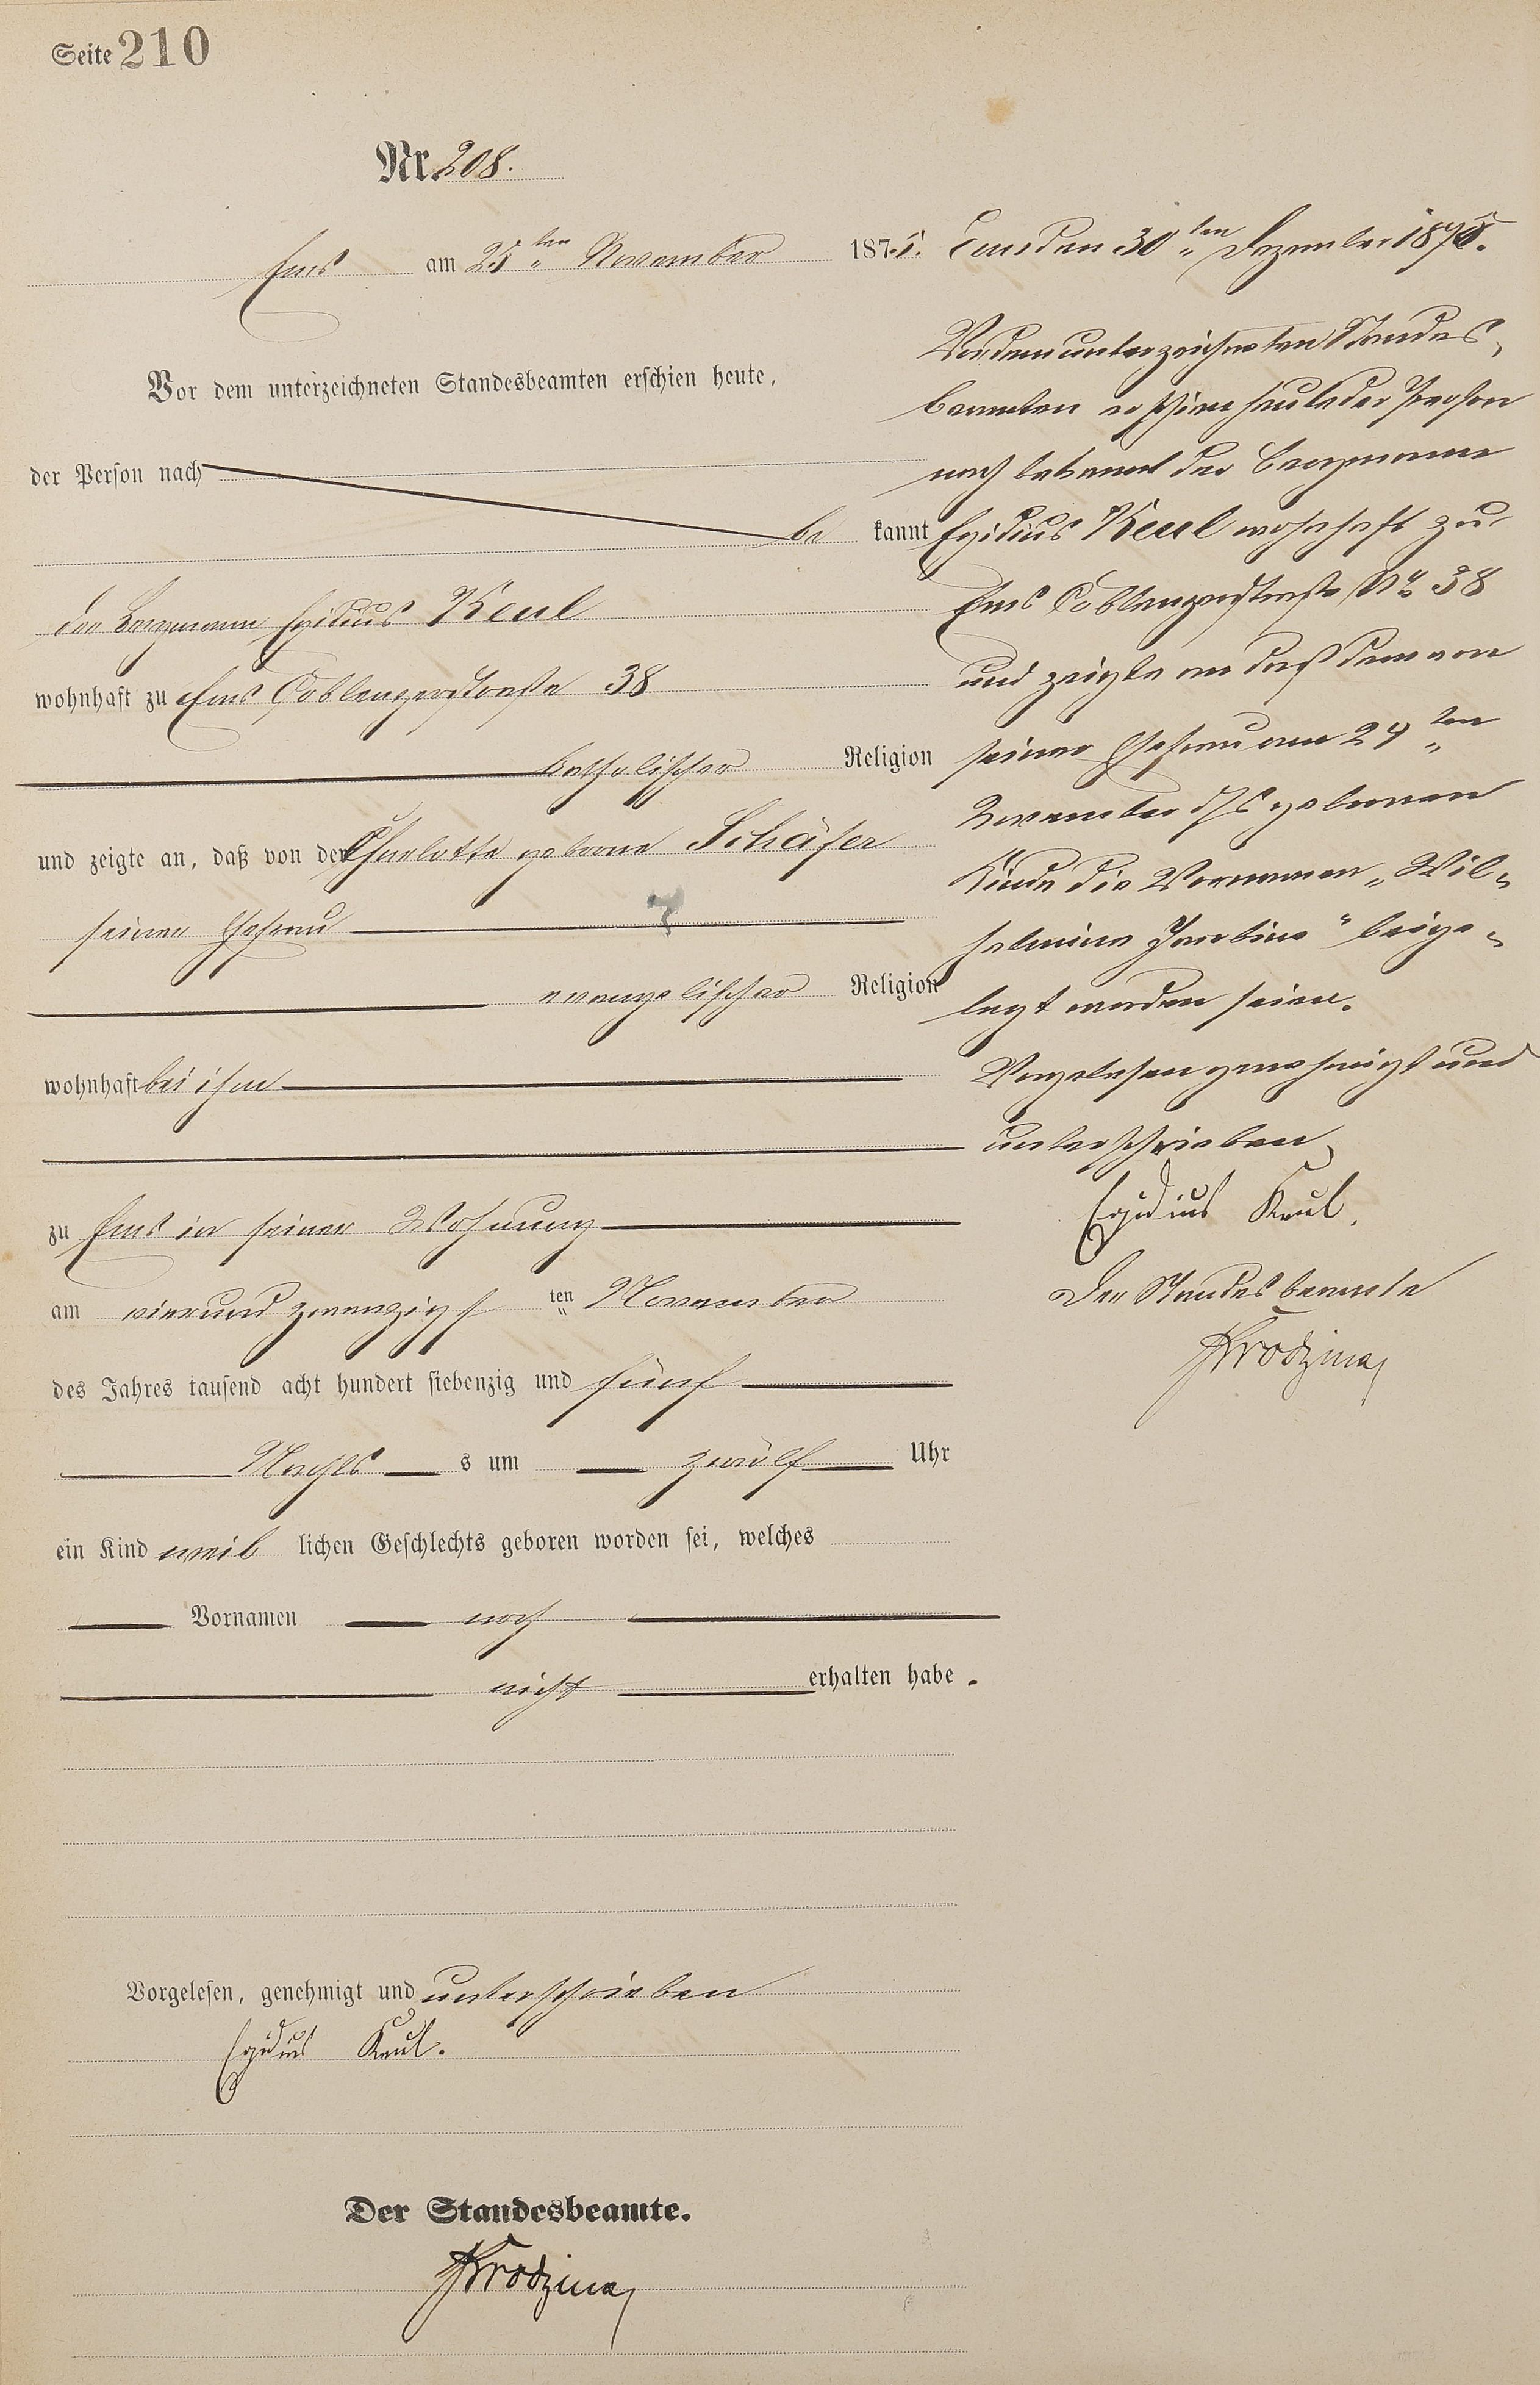 Seite 210
Nr. 208.
Ems am 25ten November 1875.
Vor dem unterzeichneten Standesbeamten erschien heute,
der Person nach
bekannt
der Bergmann Egidius Keul
wohnhaft zu Ems Coblenzerstraße 38
katholischer Religion
und zeigte an, daß von der Charlotte geborne Schäfer
seiner Ehefrau
evangelischer Religion
wohnhaft bei ihm
zu Ems in seiner Wohnung
am vierundzwanzigsten November
des Jahres tausend acht hundert siebenzig und fünf
Nachts um zwölf Uhr
ein Kind weiblichen Geschlechts geboren worden sei, welches
Vornamen noch
nicht erhalten habe.
Vorgelesen, genehmigt und unterschrieben
Egidius Keul.
Der Standesbeamte.
Ems den 30ten Dezember 1875.
Vor dem unterzeichneten Standes-
beamten erschien heute der Person
nach bekannt der Bergmann
Egidius Keul wohnhaft zu
Ems Coblenzerstraße No 38
und zeigte an daß dem von
seiner Ehefrau am 24ten
November d/Js geborenen
Kinde die Vornamen „Wil-
helmine Jacobine" beige-
legt worden seien.
Vorgelesen genehmigt und
unterschrieben
Egidius Keul.
Der Standesbeamte